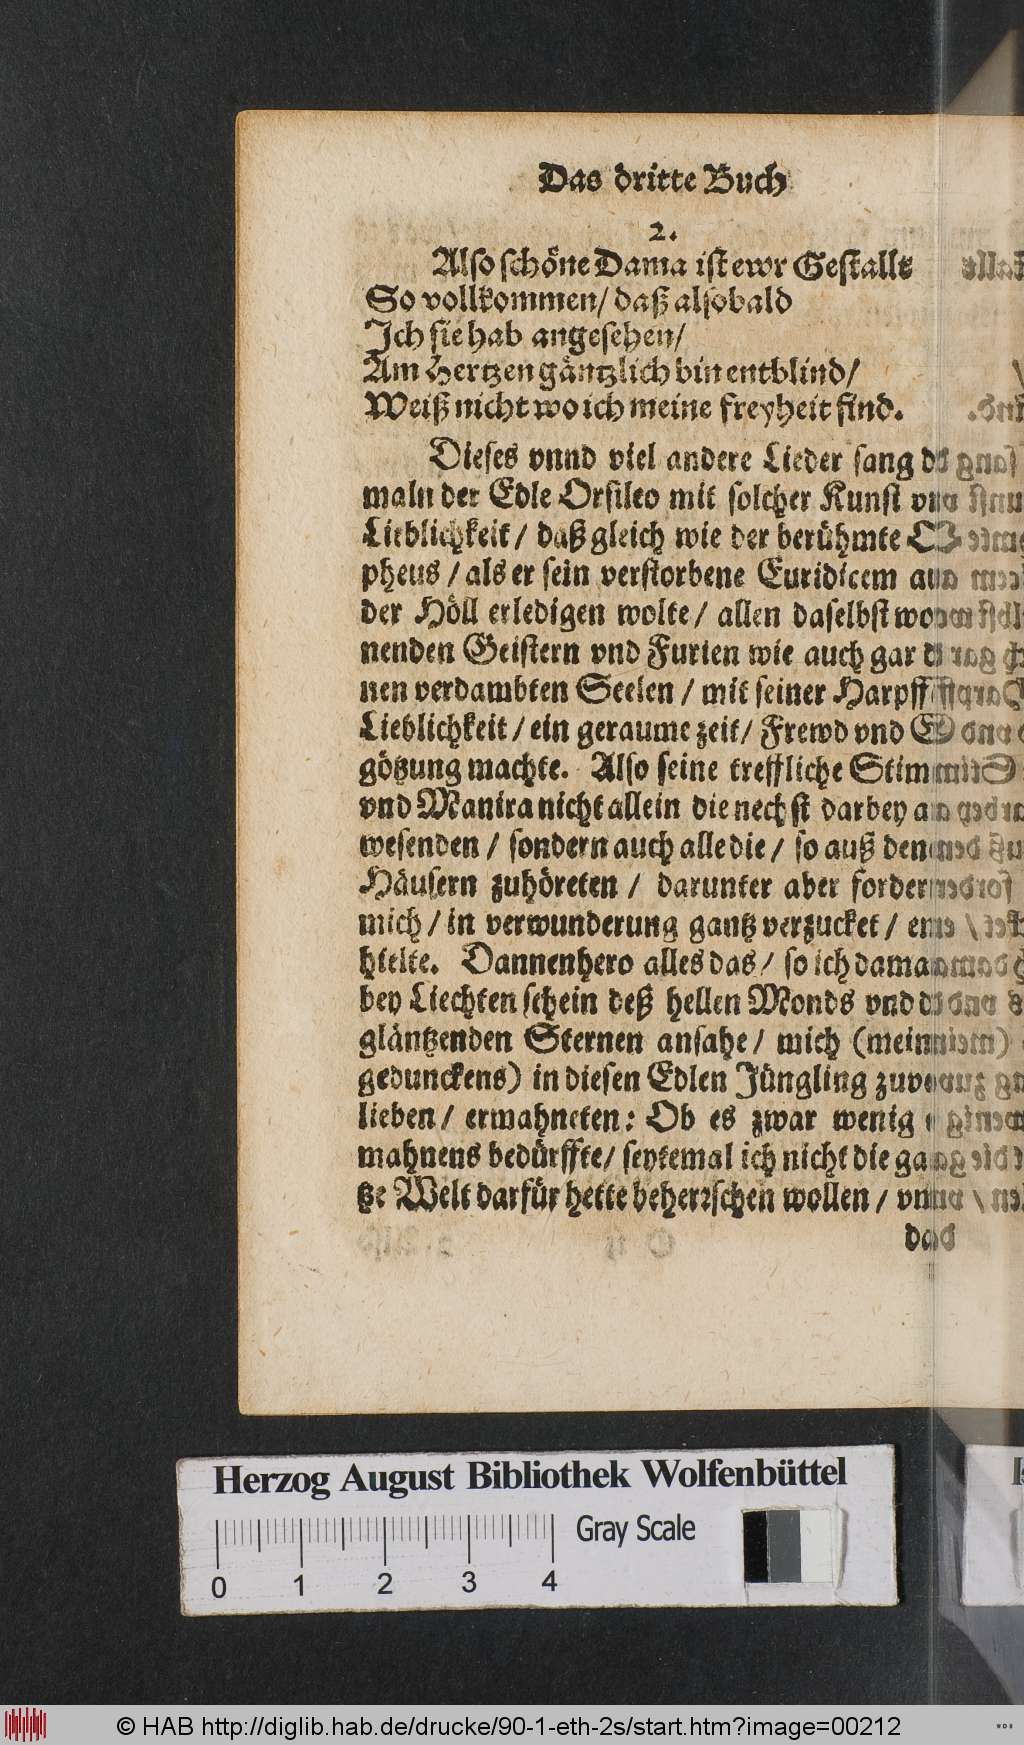 Das dritte Buch
2.
Also schöne Dama ist ewr Gestallt
So vollkommen/ daß alsobald
Ich sie hab angesehen/
Am Hertzen gäntzlich bin entblind/
Weiß nicht wo ich meine freyheit find.
Dieses vnnd viel andere Lieder sang da
maln der Edle Orsileo mit solcher Kunst vnd
Lieblichkeit / daß gleich wie der berühmte Or
pheus / als er sein verstorbene Euridicem auß
der Höll erledigen wolte / allen daselbst woh
nenden Geistern vnd Furien wie auch gar de
nen verdambten Seelen / mit seiner Harpff
Lieblichkeit / ein geraume zeit / Frewd vnd Er
götzung machte. Also seine treffliche Stimm
vnd Manira nicht allein die nechst darbey an
wesenden / sondern auch alle die / so auß den
Häusern zuhöreten / darunter aber forder
mich / in verwunderung gantz verzucket /
hielte. Dannenhero alles das / so ich dama
bey Liechten schein deß hellen Monds vnd d
gläntzenden Sternen ansahe / mich (mein
gedunckens) in diesen Edlen Jüngling zuver
lieben / ermahneten: Ob es zwar wenig
mahnens bedürffte / seytemal ich nicht die gan
tze Welt darfür hette beherrschen wollen / vnnd
daß
Herzog August Bibliothek Wolfenbüttel
Gray Scale
0 1 2 3 4
© HAB http://diglib.hab.de/drucke/90-1-eth-2s/start.htm?image=00212